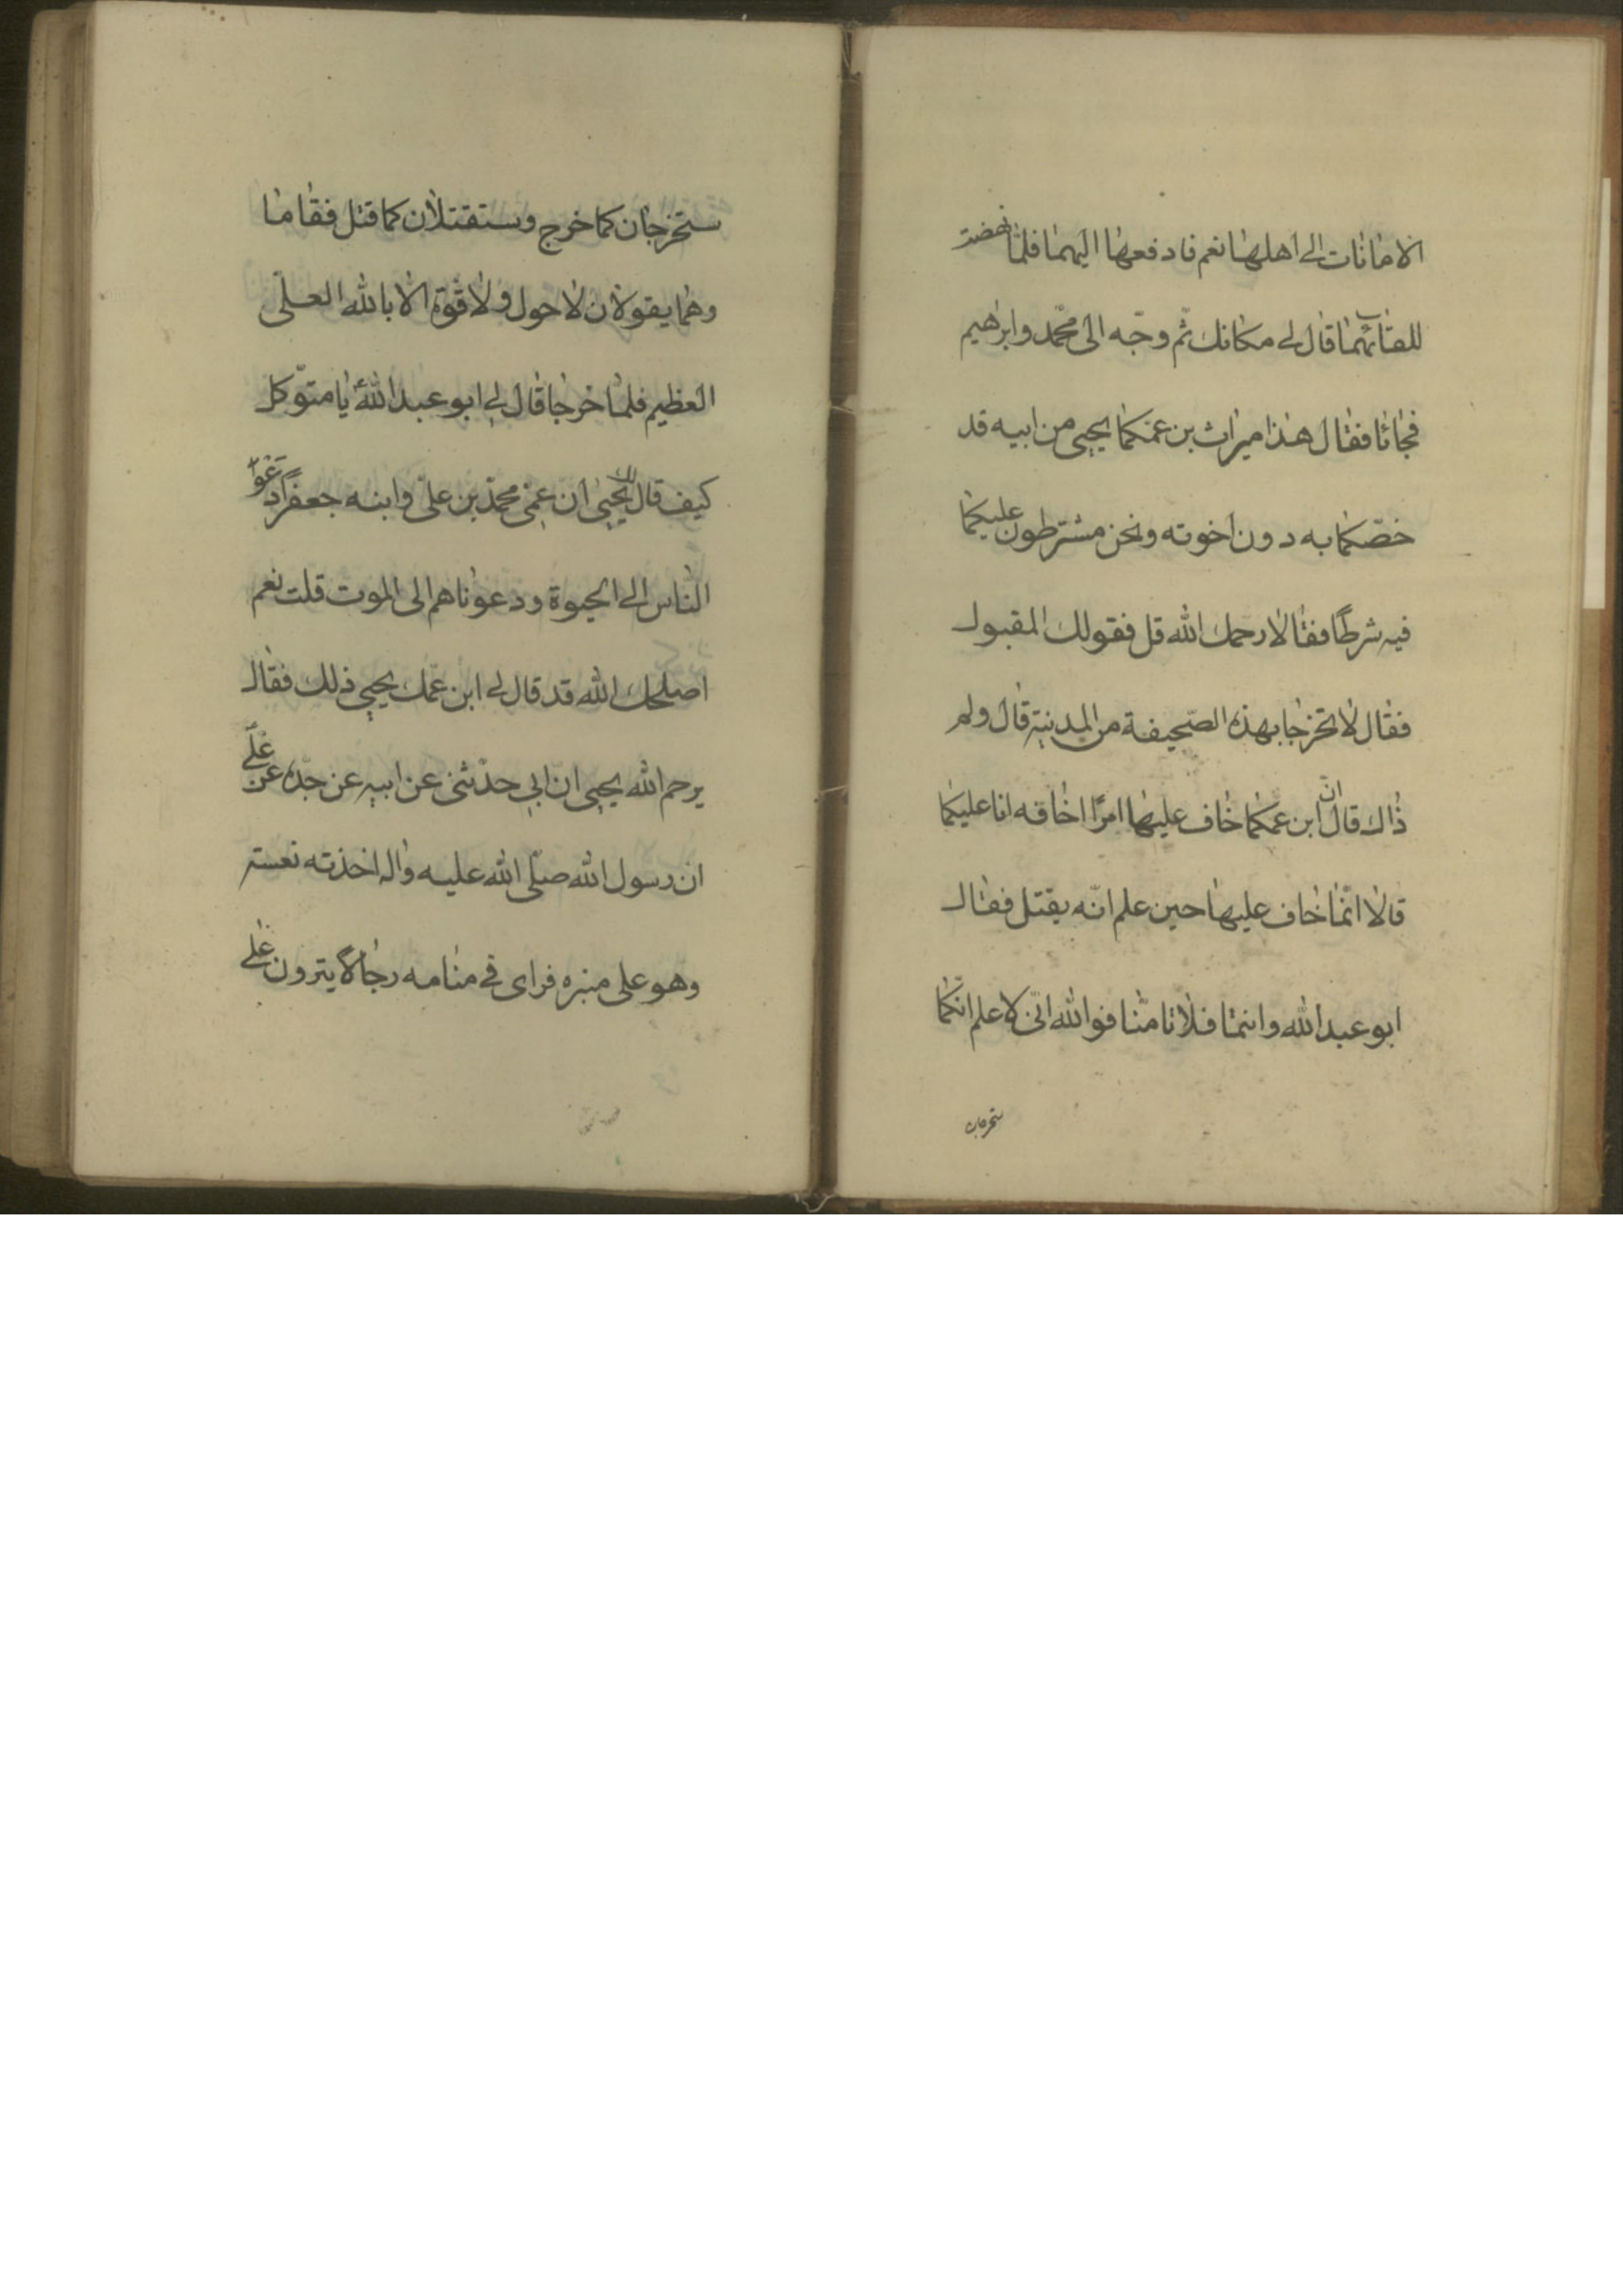 الامانات الى اهلها نعم فادفعها اليهما فلما نهضت
للقائهما قال لي مكانك ثم وجّه الى محمّد وابرهيم
فجاءا فقال هذا ميراث بن عمّكما يحيى من ابيه قد
خصّكما به دون اخوته ونحن مشترطون عليكما
فيه شرطًا فقالا رحمك الله قل فقولك المقبول
فقال لا تخرجا بهذه الصّحيفة من المدينة قالا ولم
ذاك قال انّ ابن عمّكما خاف عليها امرًا اخافه انا عليكما
قالا انّما خاف عليها حين علم انّه يقتل فقال
ابو عبد الله وانتما فلا تامنا فوالله انّى لاعلم انّكما
ستخرجان
ستخرجان كما خرج وستقتلان كما قتل فقاما
وهما يقولان لا حول ولا قوّة الا بالله العلىّ
العظيم فلمّا خرجا قال لي ابو عبد الله يا متوكل
كيف قال لك يحيى ان عمّى محمّد بن علىّ وابنه جعفرًا دعوا
النّاس الى الحيوة ودعوناهم الى الموت قلت نعم
اصلحك الله قد قال لي ابن عمّك يحيى ذلك فقال
يرحم الله يحيى انّ ابي حدّثنى عن ابيه عن جدّه عن علىّ
ان رسول الله صلّى الله عليه واله اخذته نعسة
وهو على منبره فراى في منامه رجالا ينزون على